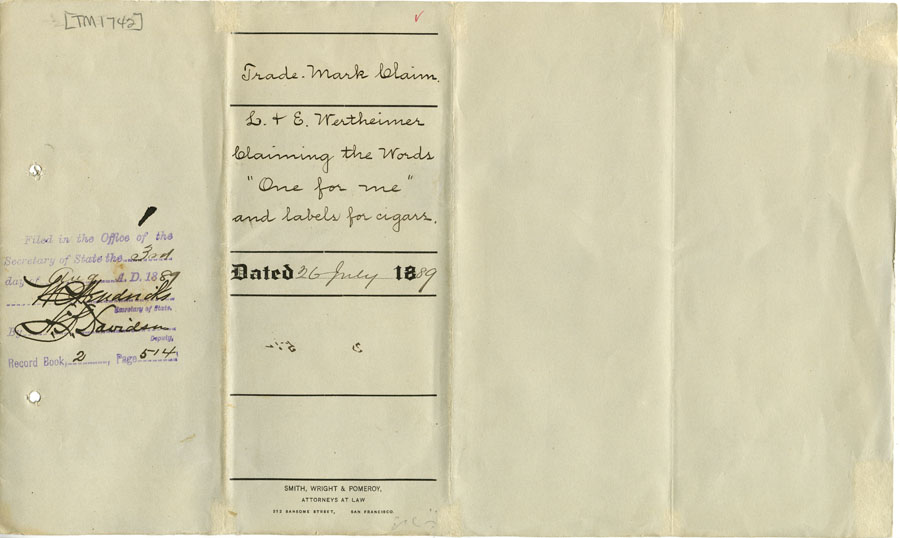 [TM1742]
Trade-Mark Claim.
L. & E. Wertheimer
Claiming the Words
"One for me"
and labels for cigars.
Dated 26 July 1889
Filed in the Office of the
Secretary of State the 3rd
day of Aug A.D. 1889
W C Hendricks
Secretary of State.
By
Davidson
Deputy.
Record Book, 2, Page 514
SMITH, WRIGHT & POMEROY,
ATTORNEYS AT LAW
SANSOME STREET, SAN FRANCISCO.